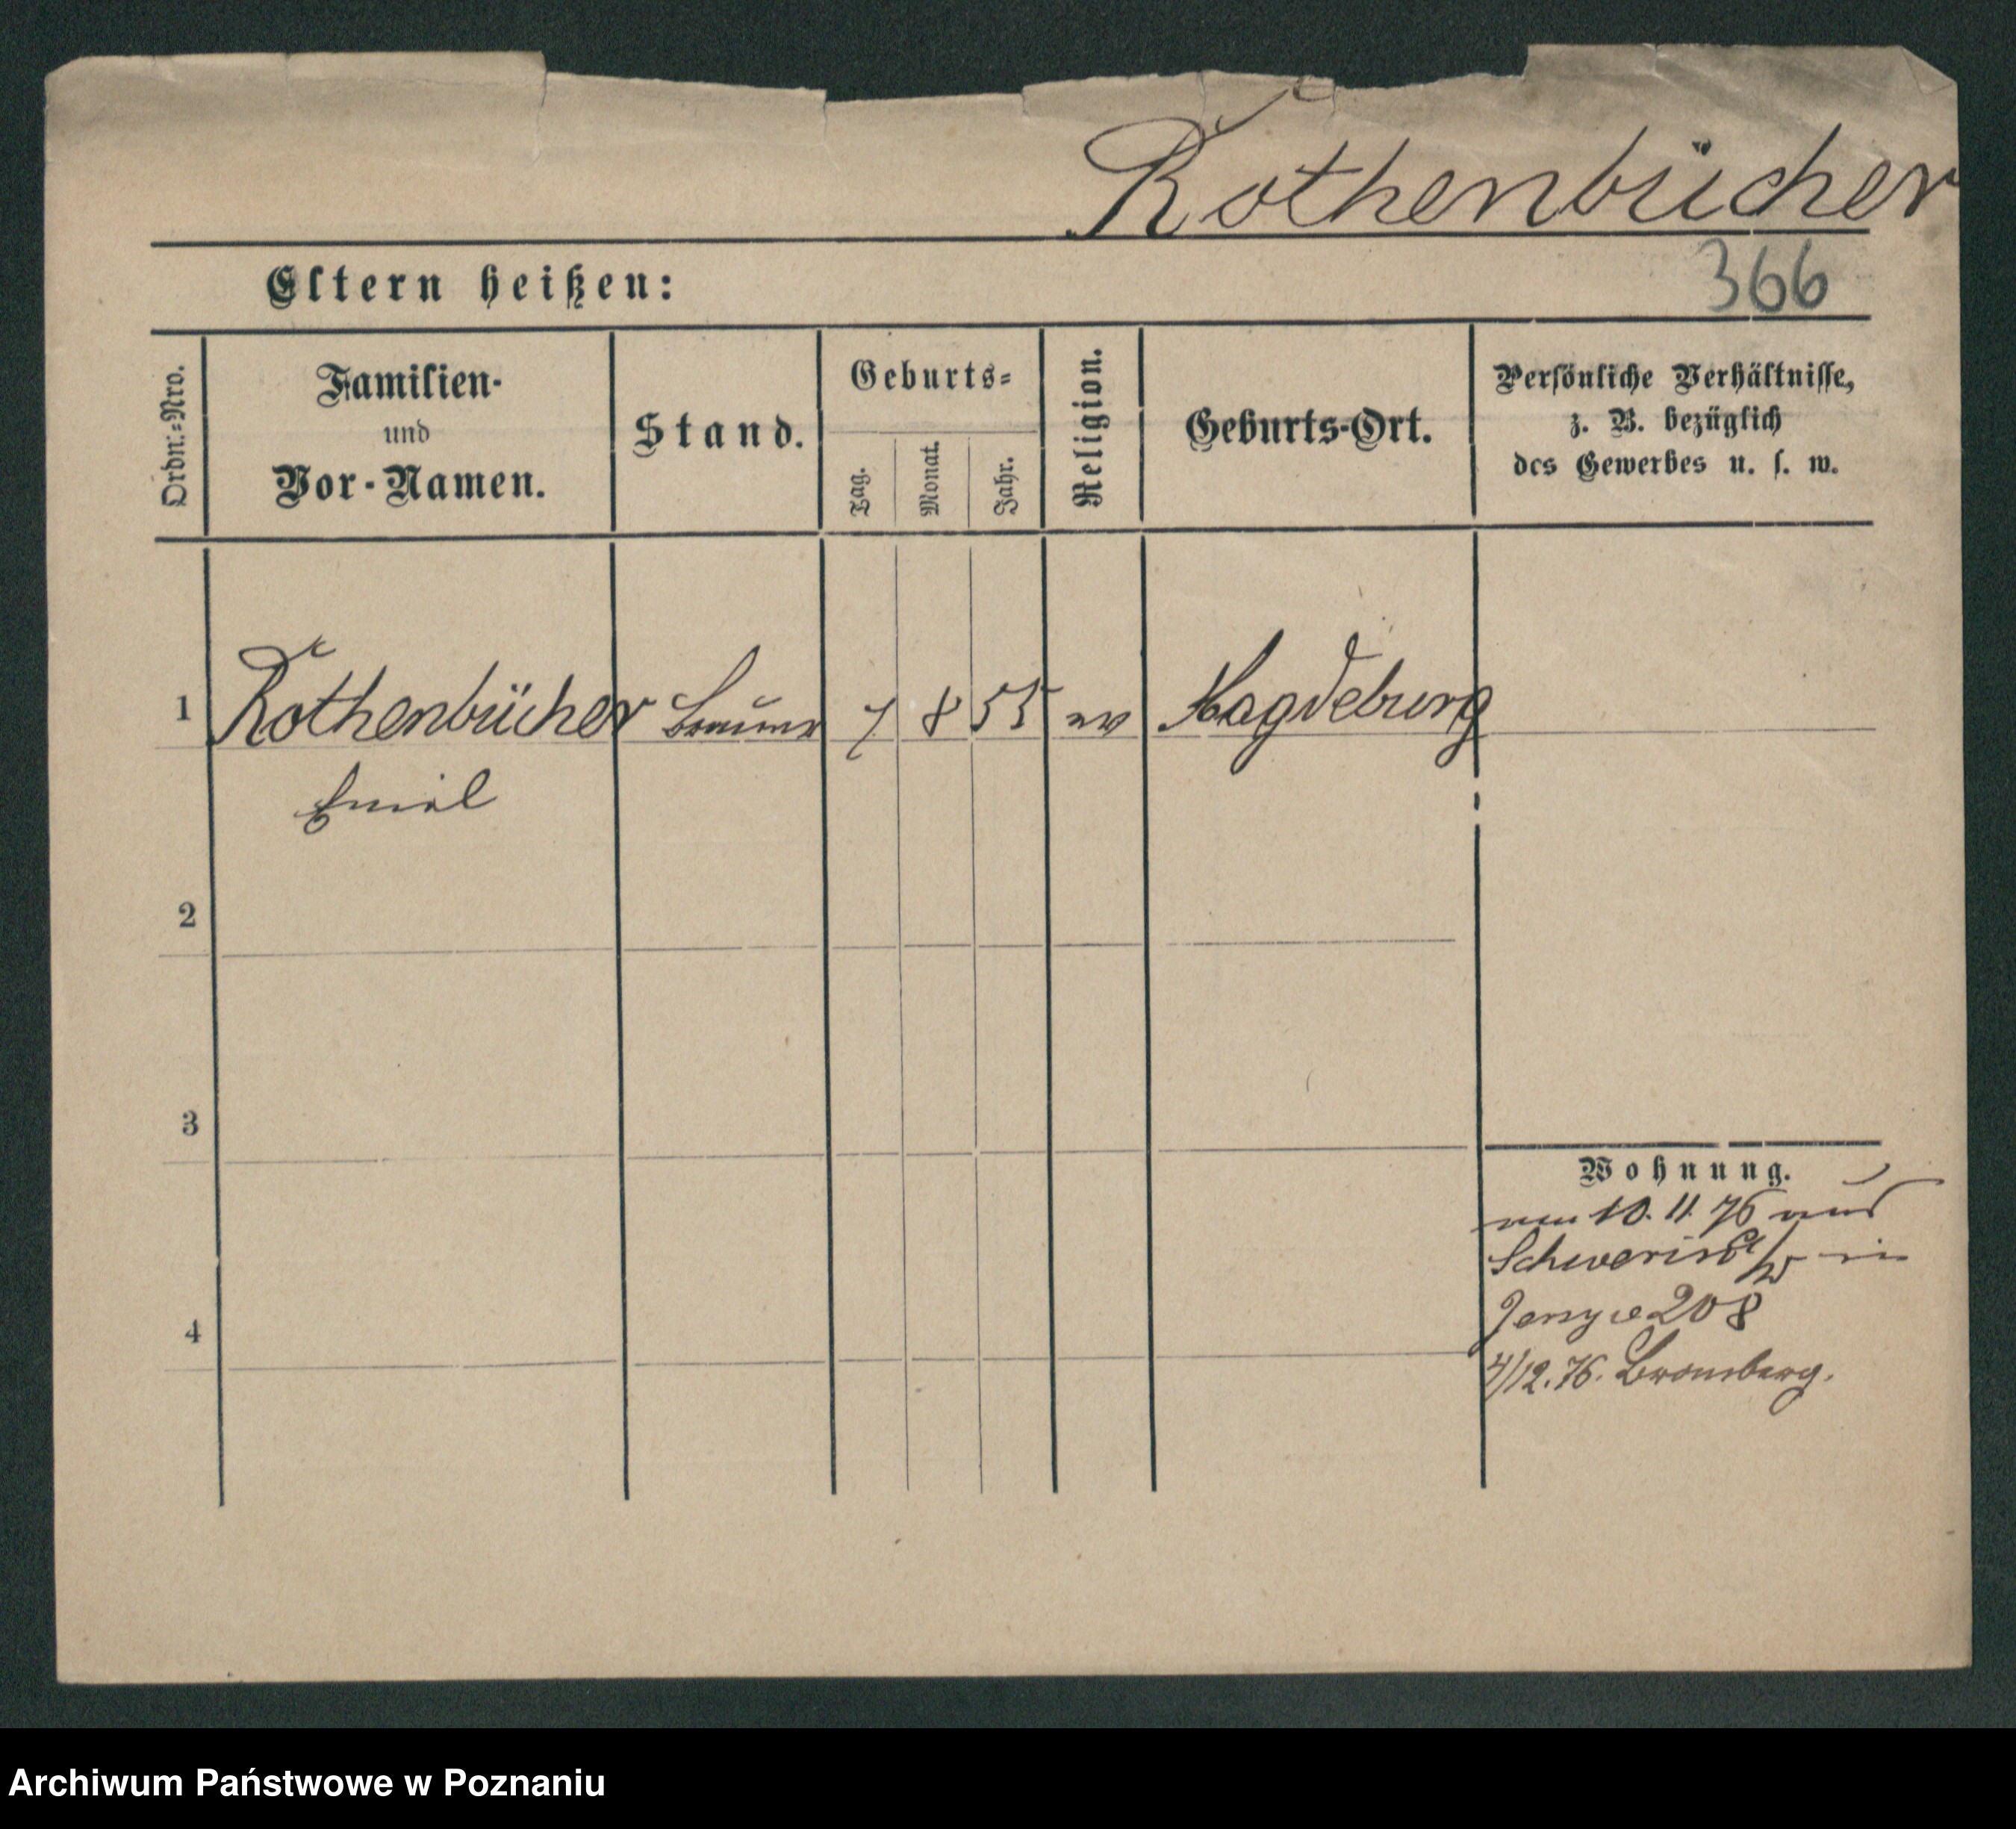 Rothenbücher
366
Eltern heißen:
Ordn.-Nro.
Familien-
und
Vor-Namen.
Stand.
Geburts-
Tag.
Monat.
Jahr.
Religion.
Geburts-Ort.
Persönliche Verhältnisse,
z. B. bezüglich
des Gewerbes u. s. w.
1 Rothenbücher Brauer 7 8 55 ev Magdeburg
Emil
2
3
4
Wohnung.
10. 11. 76 aus
Schwerin a/W in
208
4/12. 76. Bromberg.
Archiwum Państwowe w Poznaniu